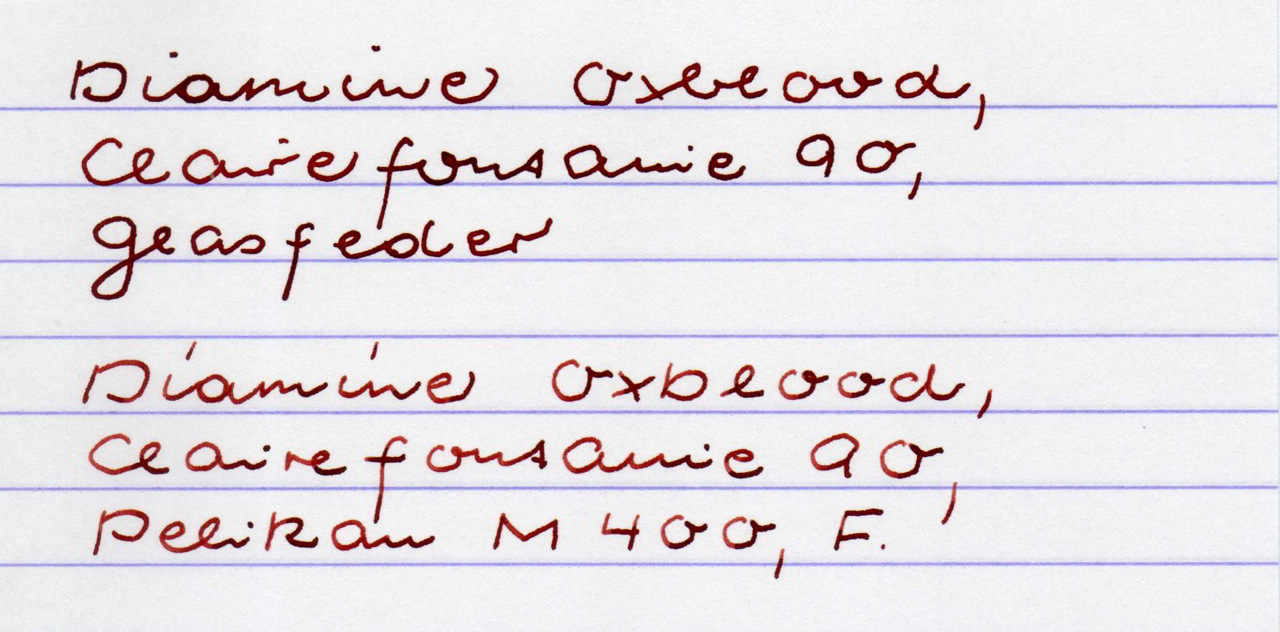 Diamine Oxblood,
Clairefontaine 90,
Glasfeder
Diamine Oxblood,
Clairefontaine 90,
Pelikan M 400, F.